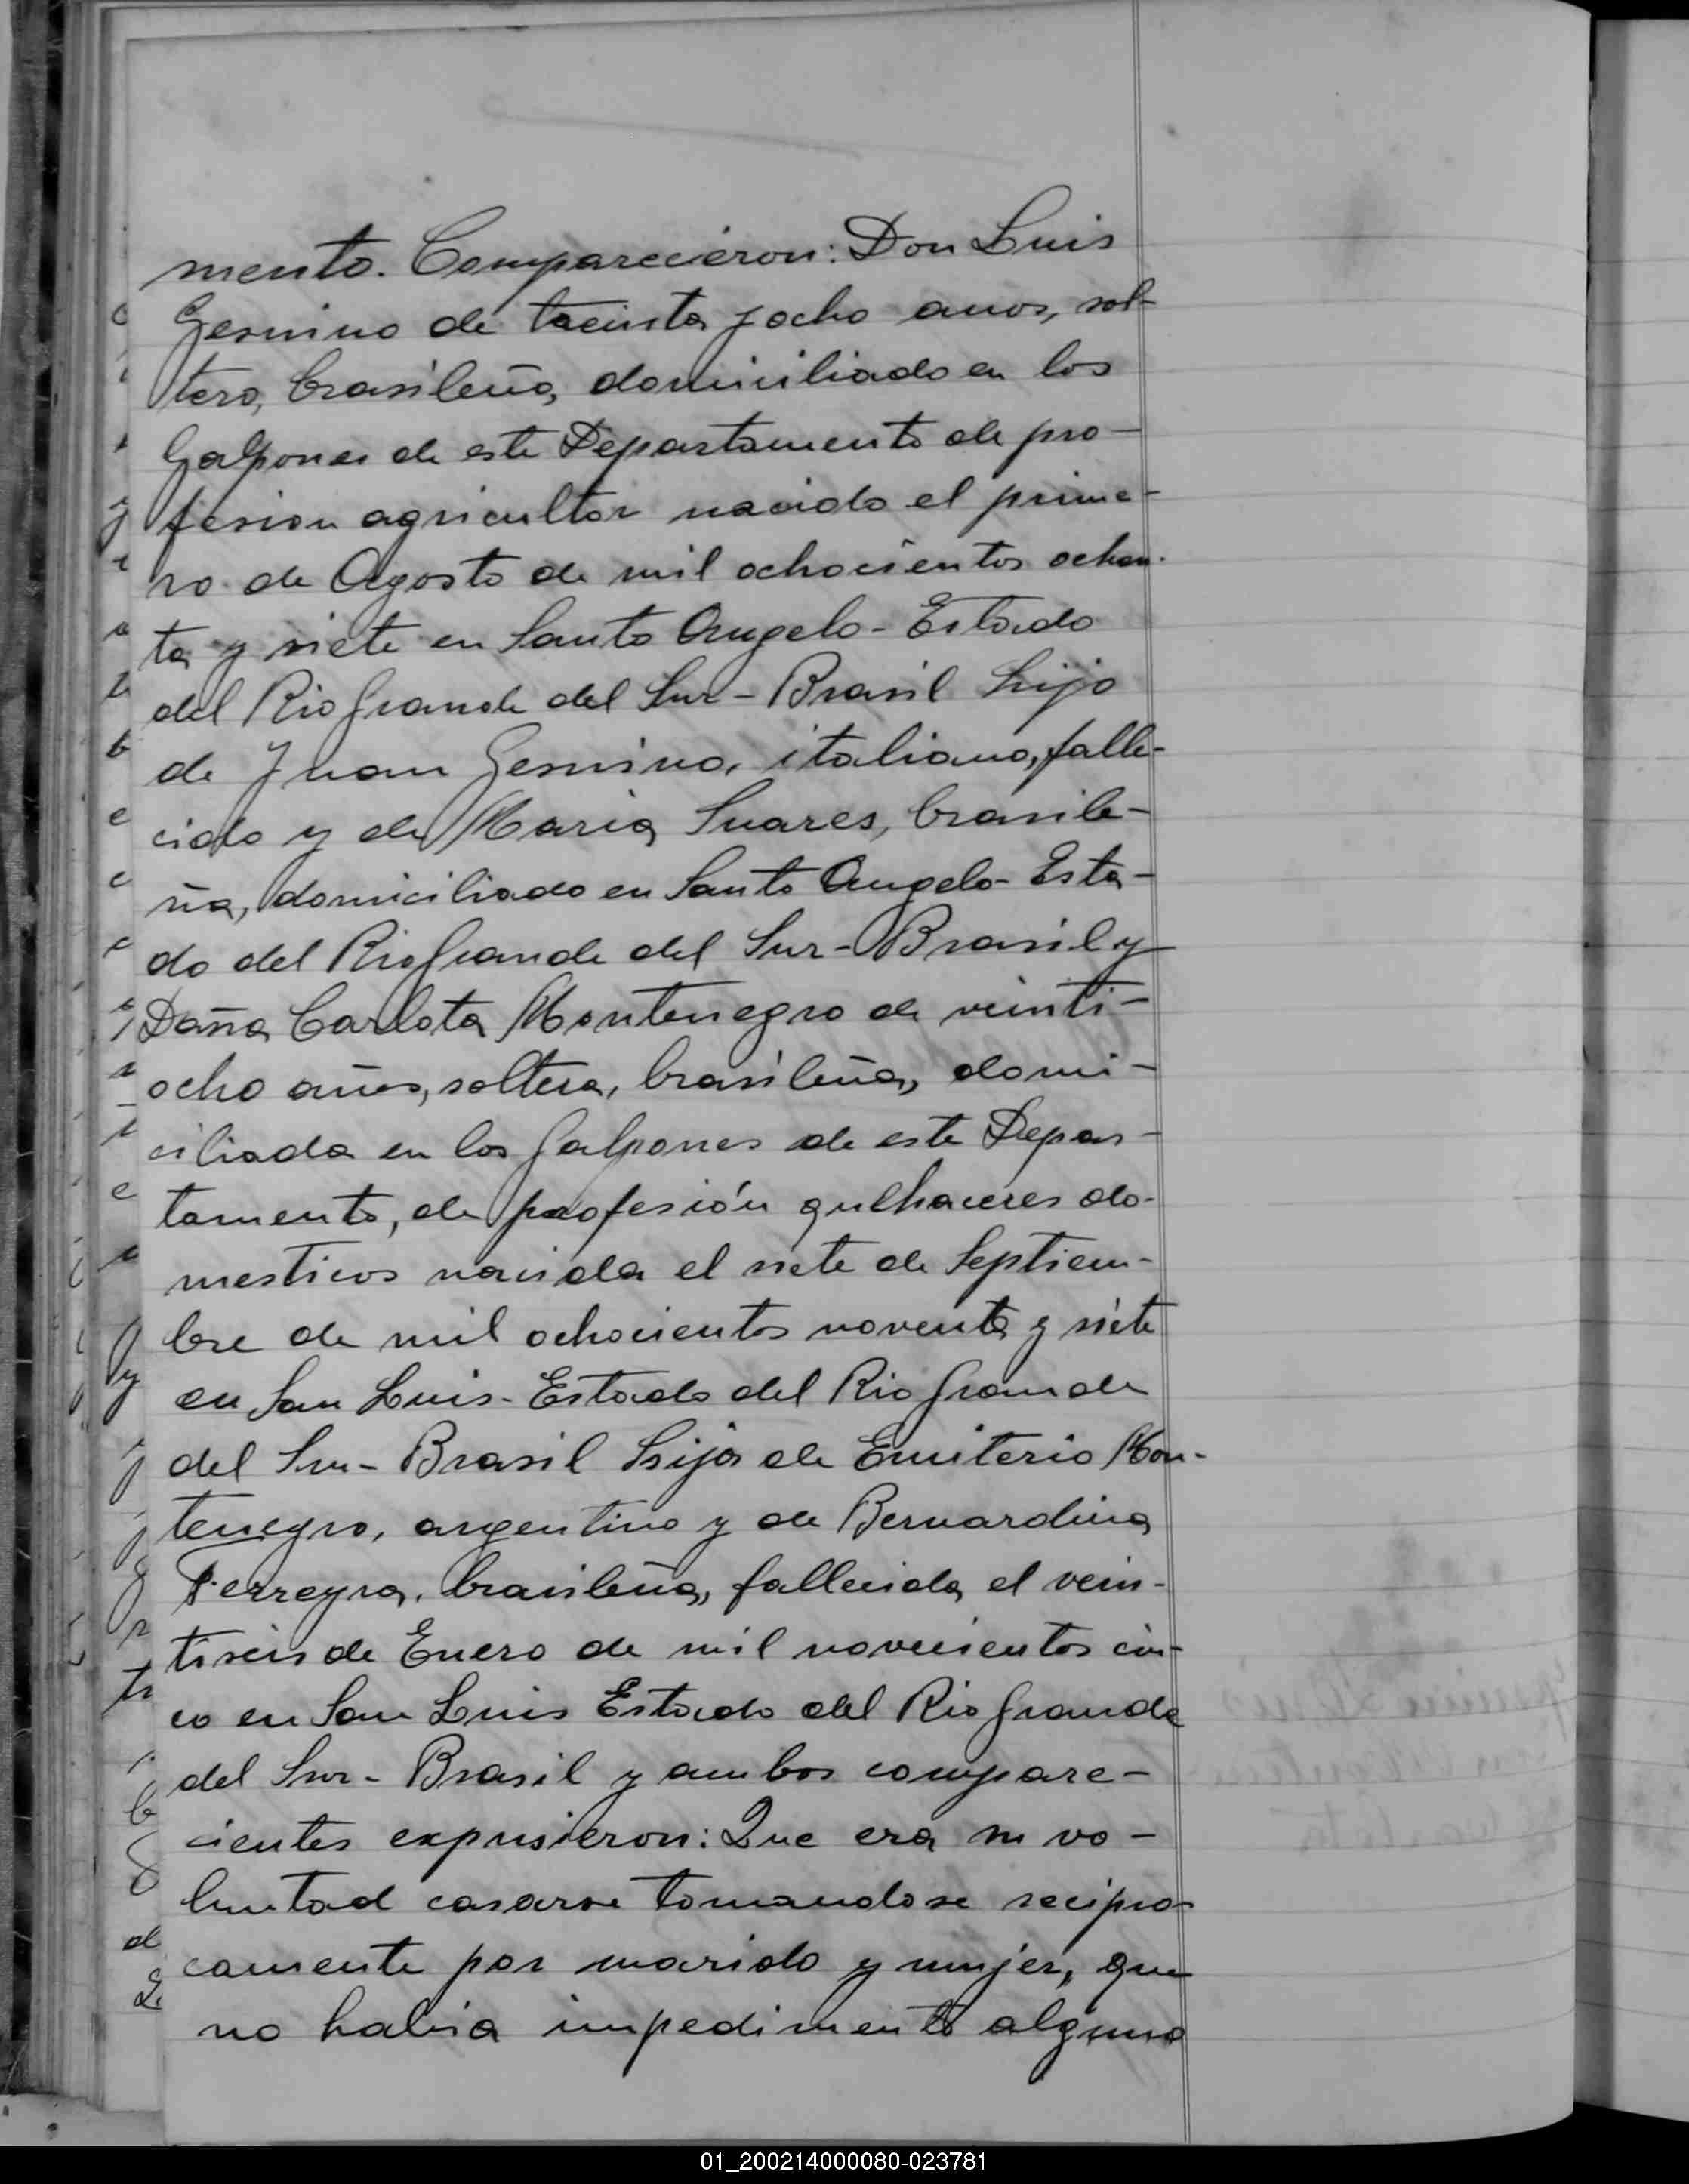 mento. Comparecieron: Don Luis
Gesnino de treinta y ocho anos, sol-
tero, brasileño, domiciliado en los
Galpones de este Departamento de pro-
fesion agricultor nacido el prime-
ro de Agosto de mil ochocientos ochen-
ta y siete en Santo Angelo - Estado
del Rio Grande del Sur - Brasil hijo
de Juan Gesnino, italiano, falle-
cido y de Maria Suares, brasile-
ña, domiciliado en Santo Angelo - Esta-
do del Rio Grande del Sur - Brasil y
Doña Carlota Montenegro de veinti-
ocho años, soltera, brasileña, domi-
ciliada en los Galpones de este Depar-
tamento, de profesión quelhaceres do-
mesticos nacida el siete de Septiem-
bre de mil ochocientos noventa y siete
en San Luis - Estado del Rio Grande
del Sur - Brasil hija de Emiterio Mon-
tenegro, argentino y de Bernardina
Ferreyra, brasileña, fallecida el vein-
tiseis de Enero de mil novecientos cin-
co en San Luis Estado del Rio Grande
del Sur - Brasil y ambos compare-
cientes expusieron: Que era su vo-
luntad casarse tomandose recipro-
camente por marido y mujer, que
no habia impedimento alguno
01_200214000080-023781